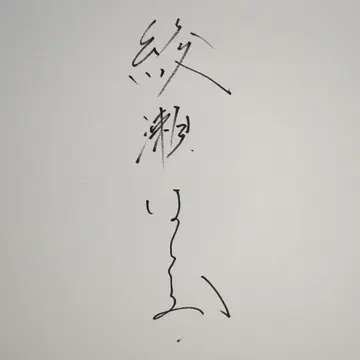 綾瀬はるか